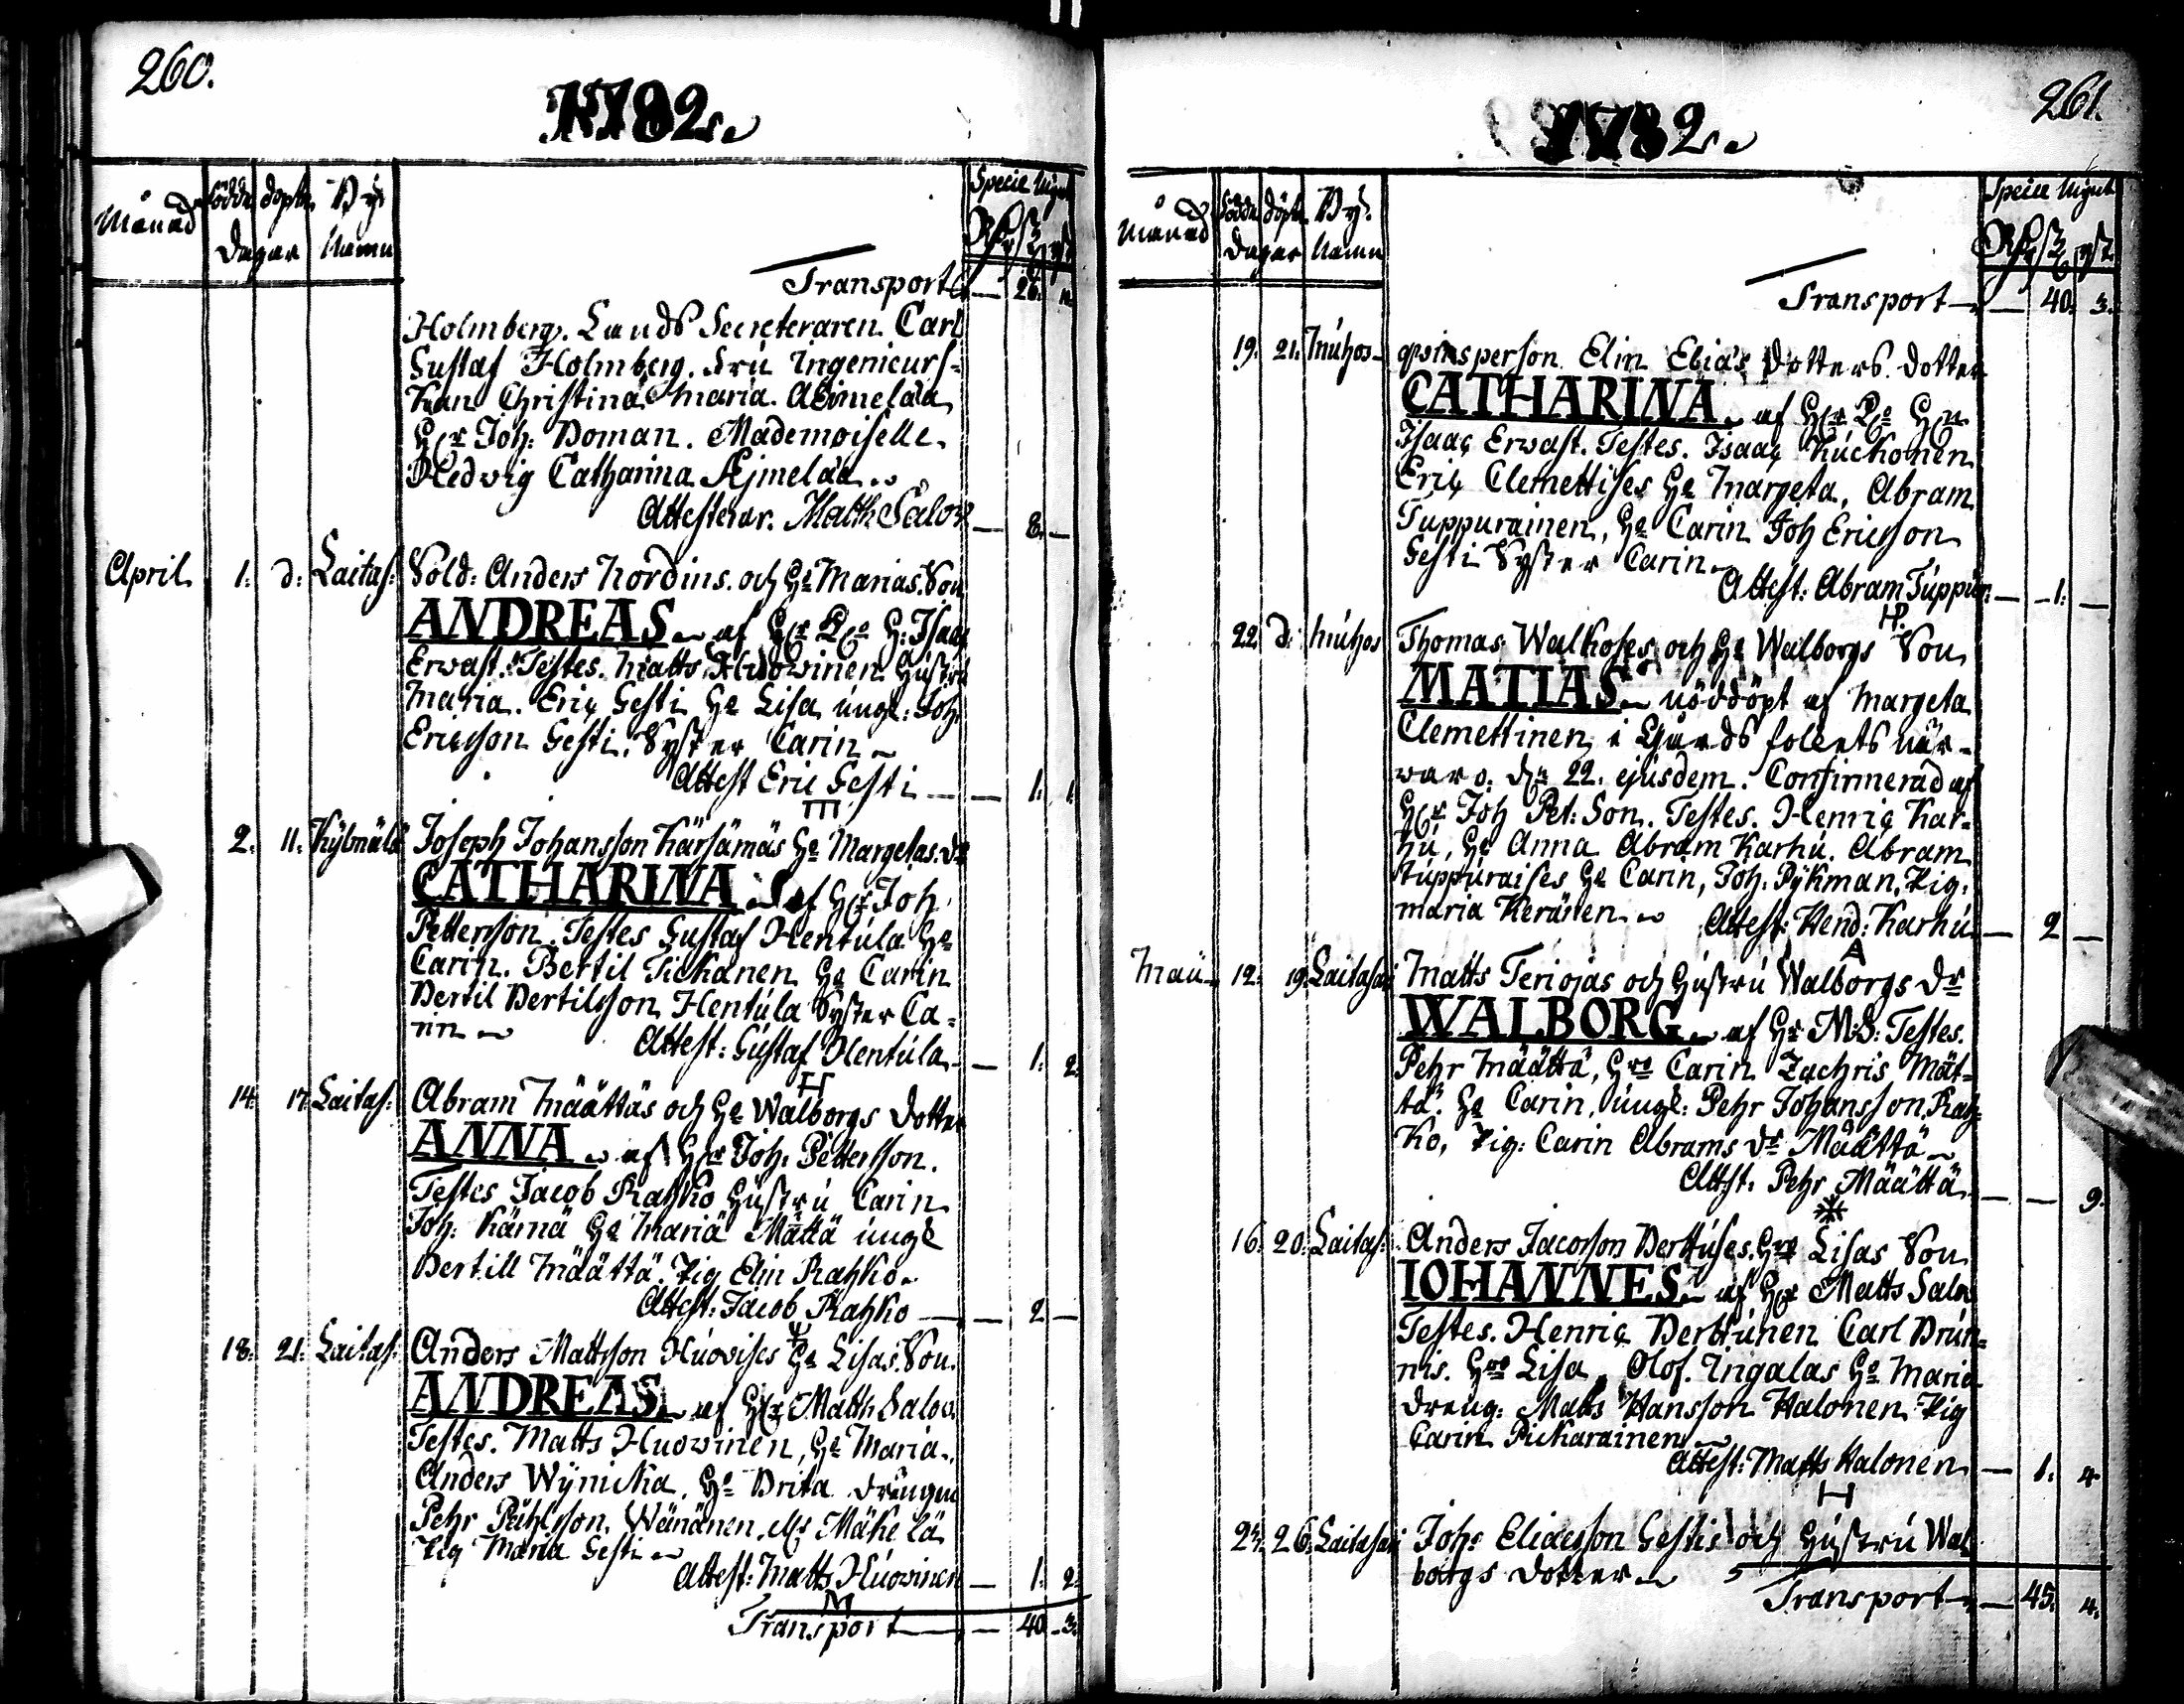 260.
1782.
Månad Födde döpte By
Dagar Namn
Specie
Transport — 26.
Holmberg. Lands Secreteraren Carl
Gustaf Holmberg. Fru Ingenieurs-
kan Christina Maria
Her Joh: Boman. Mademoiselle
Hedvig Catharina Æjmelæa.
Attesterar. Matth Salov — 8. —
April 1. d: Laitas: Sold: Anders Nordins. och He Marias. Son
ANDREAS af Isaac
Ervast. Testes. Matts Huovinen Hustru
Maria. Eric Gesti He Lisa üngl: Joh.
Ericsson Gesti. Syster Carin
Attest Eric Gesti — 1. 1.
2. 11. Kylmälä Joseph Johansson Kärsämäs He Margetas. dr
CATHARINA af Her Joh
Pettersson. Testes Gustaf Hentula He
Carin. Bertil Tickanen He Carin
Bertil Bertilsson Hentula Syster Ca-
rin
Attest: Gustaf Hentula — 1. 2.
H
14. 17. Laitas: Abram Määttäs och He Walborgs dotter
ANNA af Her Joh. Pettersson.
Testes Jacob Rahko Hustru Carin
Joh. Kämä He Maria Mättä üngl
Bertill Määttä. Pig Elin Rahko.
Attest: Jacob Rahko — 2 —
18. 21. Laitas: Anders Mattsson Huovises He Lisas. Son.
ANDREAS. af Her Matth Salov.
Testes. Matts Huovinen, He Maria.
Anders Wynicka. He Brita drängen
Pehr Påhlsson. Wänänen. Mäkelä
Pig Maria Gesti
Attest: Matts Huovinen — 1. 2.
M
Transport — 40. 3.
261.
1782.
Månad Födde döpte By
Dagar Namn
Specie
Transport — 40. 3.
19. 21. Muhos qvinsperson Elin Elia's Dotters. dotter
CATHARINA. af
Isaac Ervast. Testes. Isaac Kuckonen
Eric Clemettises He Margeta, Abram
Tuppurainen, He Carin Joh Ericsson
Gesti Syster Carin
Attest: Abram Tuppur — 1. —
22. d. Muhos Thomas Walkoses och He Walborgs Son
MATIAS nöddöpt af Margeta
Clemettinen i Gårds folcets när-
varo. den 22. ejusdem. Confirmerad af
Her Joh Pet: Son. Testes. Henric Kar-
hu, He Anna Abram Karhu. Abram
Tuppuraises He Carin, Joh. Pykman. Pig.
Maria Keränen. Attest: Hend: Karhu — 2 —
A
Maii 12. 19. Laitasari Matts Teriojas och Hustru Walborgs dr
WALBORG. af Hr M:S: Testes.
Pehr Määttä, Carin Zachris Mät-
tä. He Carin, üngl: Pehr Johansson Rah-
ko, Pig: Carin Abrams dr Määttä
Attst. Pehr Määttä — — 9.
16. 20. Laitas: Anders Jacosson Berttuses. Lisas Son
IOHANNES. af Her Matts Salov
Testes. Henric Berttunen Carl Brun-
nis. Lisa, Olof. Ingalas He Maria
dreng: Matts Hansson Halonen Pig
Carin Pickarainen
Attest: Matts Halonen — 1. 4.
H
24. 26. Laitasari Joh: Eliaesson Gestis och Hustru Wal
borgs dotter
Transport — 45. 4.